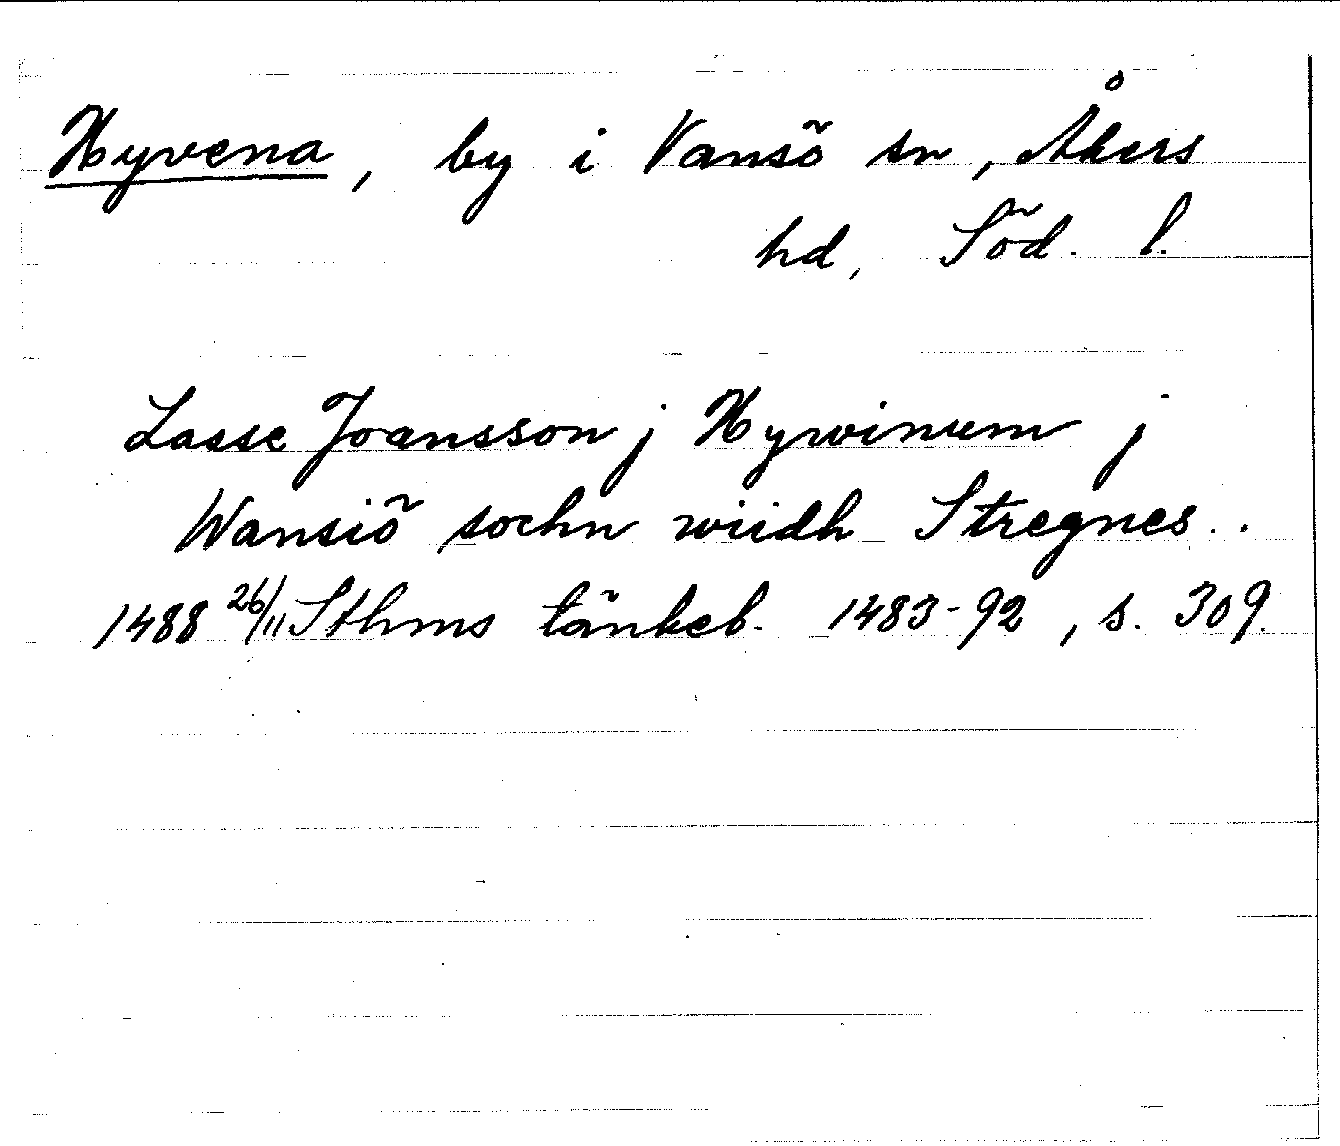 Hyvena, by i Vansö sn, Åkers
hd, Söd. l.
Lasse Joansson j Hyrvinum j
Wansiö sochn wiidh Stregnes..
1488 26/11 Sthms tänkeb. 1483-92, s. 309.